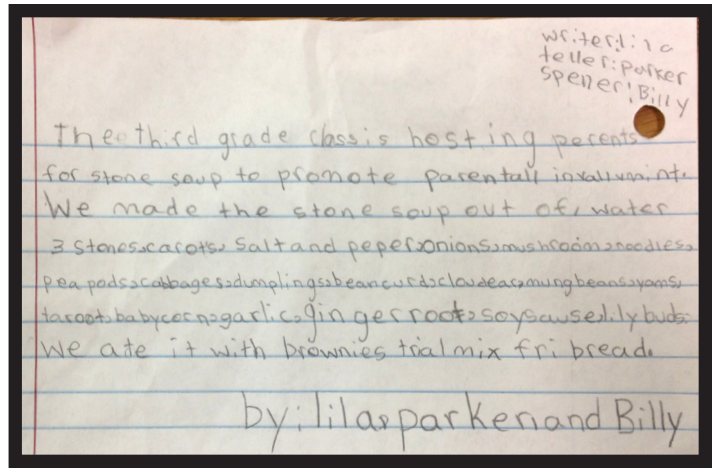 writer: lila
teller: parker
speller: Billy
The third grade class is hosting perents
for stone soup to promote parentall invallvmint.
We made the stone soup out of, water
3 stones, carots, salt and peper, onions, mushroom, noodles,
pea pods, cabbages, dumplings, bean curd, cloud ear, mung beans, yams,
taroot, baby corn, garlic, ginger root, soy sause, lily buds.
We ate it with brownies trial mix fri bread.
by: lila, parker, and Billy